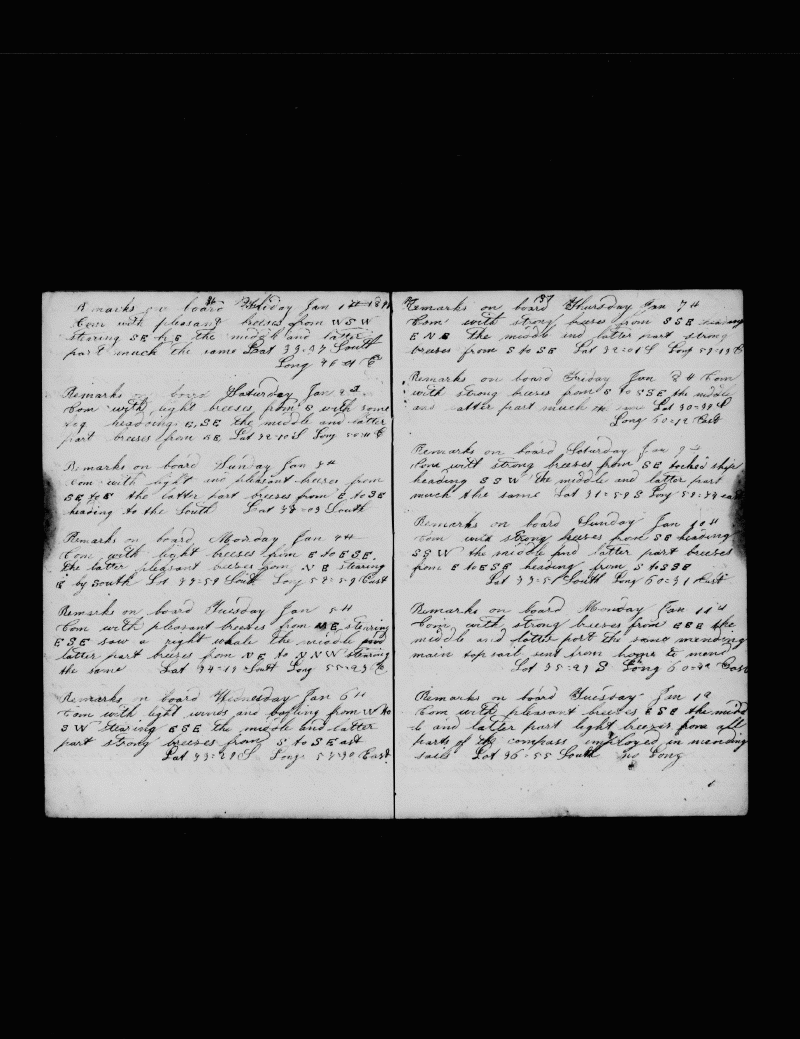 36
Remarks on board Friday Jan 1st
Com with pleasant breeses from W S W
stearing SE b E the middle and latter
part much the same Lat 33=37 South
Long 46 E
Remarks on board Saturday Jan 2d
Com with light breeses from E with some
fog heading E,SE the middle and latter
part breeses from SE Lat S Long E
Remarks on board Sunday Jan 3d
Com with light and pleasant breeses from
SE to E the latter part breeses from E to SE
heading to the South Lat =03 South
Remarks on board Monday Jan 4th
Com with light breeses from E to ESE.
the latter pleasant breeses from N E stearing
E by South Lat 33=59 South Long 52=59 East
Remarks on board Tuesday Jan 5th
Com with pleasant breeses from NE stearing
ESE saw a right whale the middle and
latter part breeses from N E to N N W stearing
the same Lat 34=19 South Long 55=23 E
Remarks on board Wednesday Jan 6th
Com with light winds and bafling from W to
S W stearing ESE the middle and latter
part strong breeses from S to S East
Lat 33=29 S Long 57=30 East
(37
Remarks on board Thursday Jan 7th
Com with strong breeses from SSE heading
E N E the middle and latter part strong
breeses from S to SE Lat 32=01 S Long 59=13 E
Remarks on board Friday Jan 8th Com
with strong breeses from E to SSE the middle
and latter part much the same Lat 30=39 S
Long 60=12 East
Remarks on board Saturday Jan 9th
Com with strong breeses from SE tacked ship
heading S S W the middle and latter part
much the same Lat 31=59 S Long 59=44 east
Remarks on board Sunday Jan 10th
Com with strong breeses from SE heading
S S W the middle and latter part breeses
from E to ESE heading from S to SSE
Lat 33=51 South Long 60=31 East
Remarks on board Monday Jan 11th
Com with strong breeses from ESE the
middle and latter part the same mending
main top sail sent from home to mend
Lat 35=23 S Long 60=42 East
Remarks on board Tuesday Jan 12
Com with pleasant breeses ESE the midd
le and latter part light breezes from all
parts of the compass imployed in mending
sails Lat 36=55 South No Long